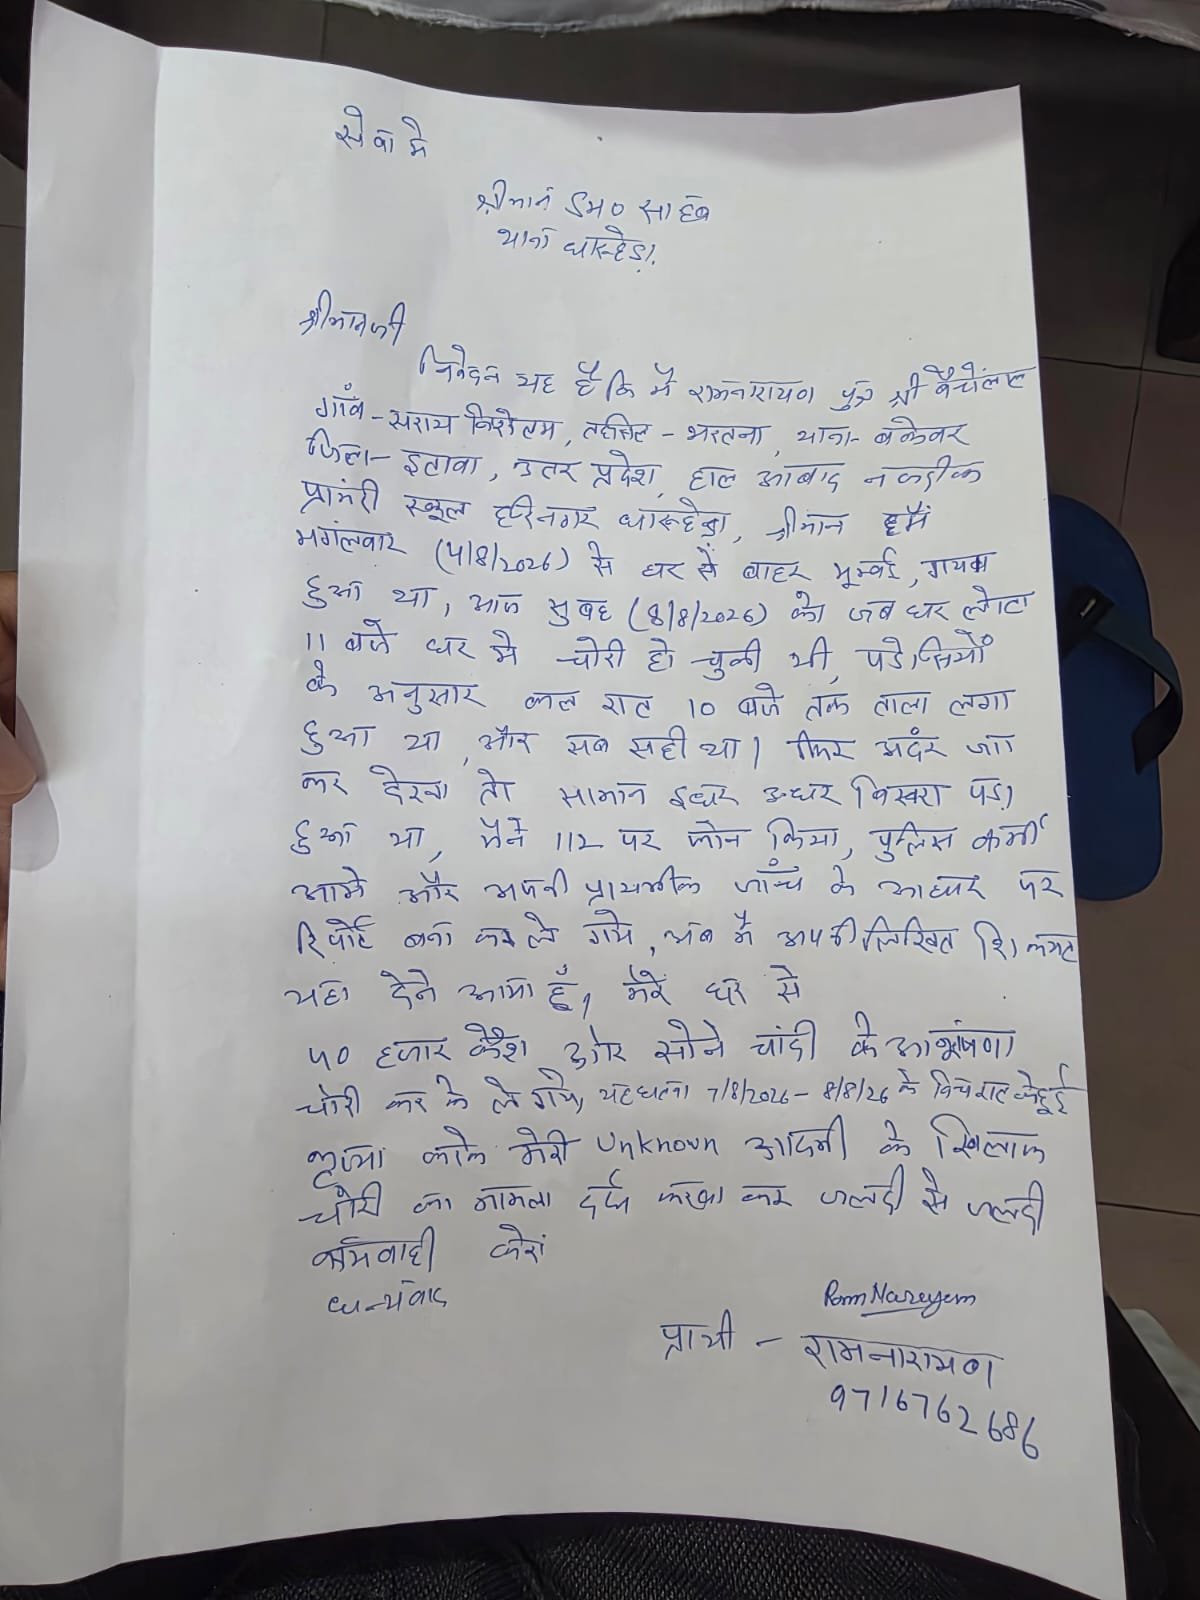 सेवा मे
श्रीमान SHO साहब
थाना धारूहेड़ा.
श्रीमानजी
निवेदन यह है कि मै रामनारायण पुत्र श्री बैचेलाल
गाँव - सराय , तहसिल - भरतना, थाना - बकेवर
जिला - इटावा, उतर प्रदेश, हाल आबाद नजदीक
प्रामरी स्कूल हरिनगर धारूहेड़ा, श्रीमान हमें
मगंलवार (4/8/2026) से घर से बाहर मूम्बई, गायब
हुआ था, आज सुबह (8/8/2026) को जब घर लोटा
11 बजे घर मे चोरी हो चुकी थी, पडोसियों
के अनुसार कल रात 10 बजे तक ताला लगा
हुआ था, और सब सही था। फिर अदंर जा
कर देखा तो सामान इधर उधर बिखरा पड़ा
हुआ था, मैने 112 पर फोन किया, पुलिस कर्मी
आये और अपनी प्राथमीक जाँच के आधार पर
रिपोर्ट बना कर ले गये, अब मै आपकी लिखित शिकायत
यहा देने आया हूँ, मेरे घर से
50 हजार कैश और सोने चांदी के आभूषण
चोरी कर के ले गये, यह घटना 7/8/2026 - 8/8/26 के बिच रात को हुई
कृप्या करके मेरी Unknown आदमी के खिलाफ
चोरी का मामला दर्ज करवा कर जलदी से जलदी
कार्यवाही करें
धन्यवाद
Ram Narayan
प्राथी - रामनारायण
9716762686